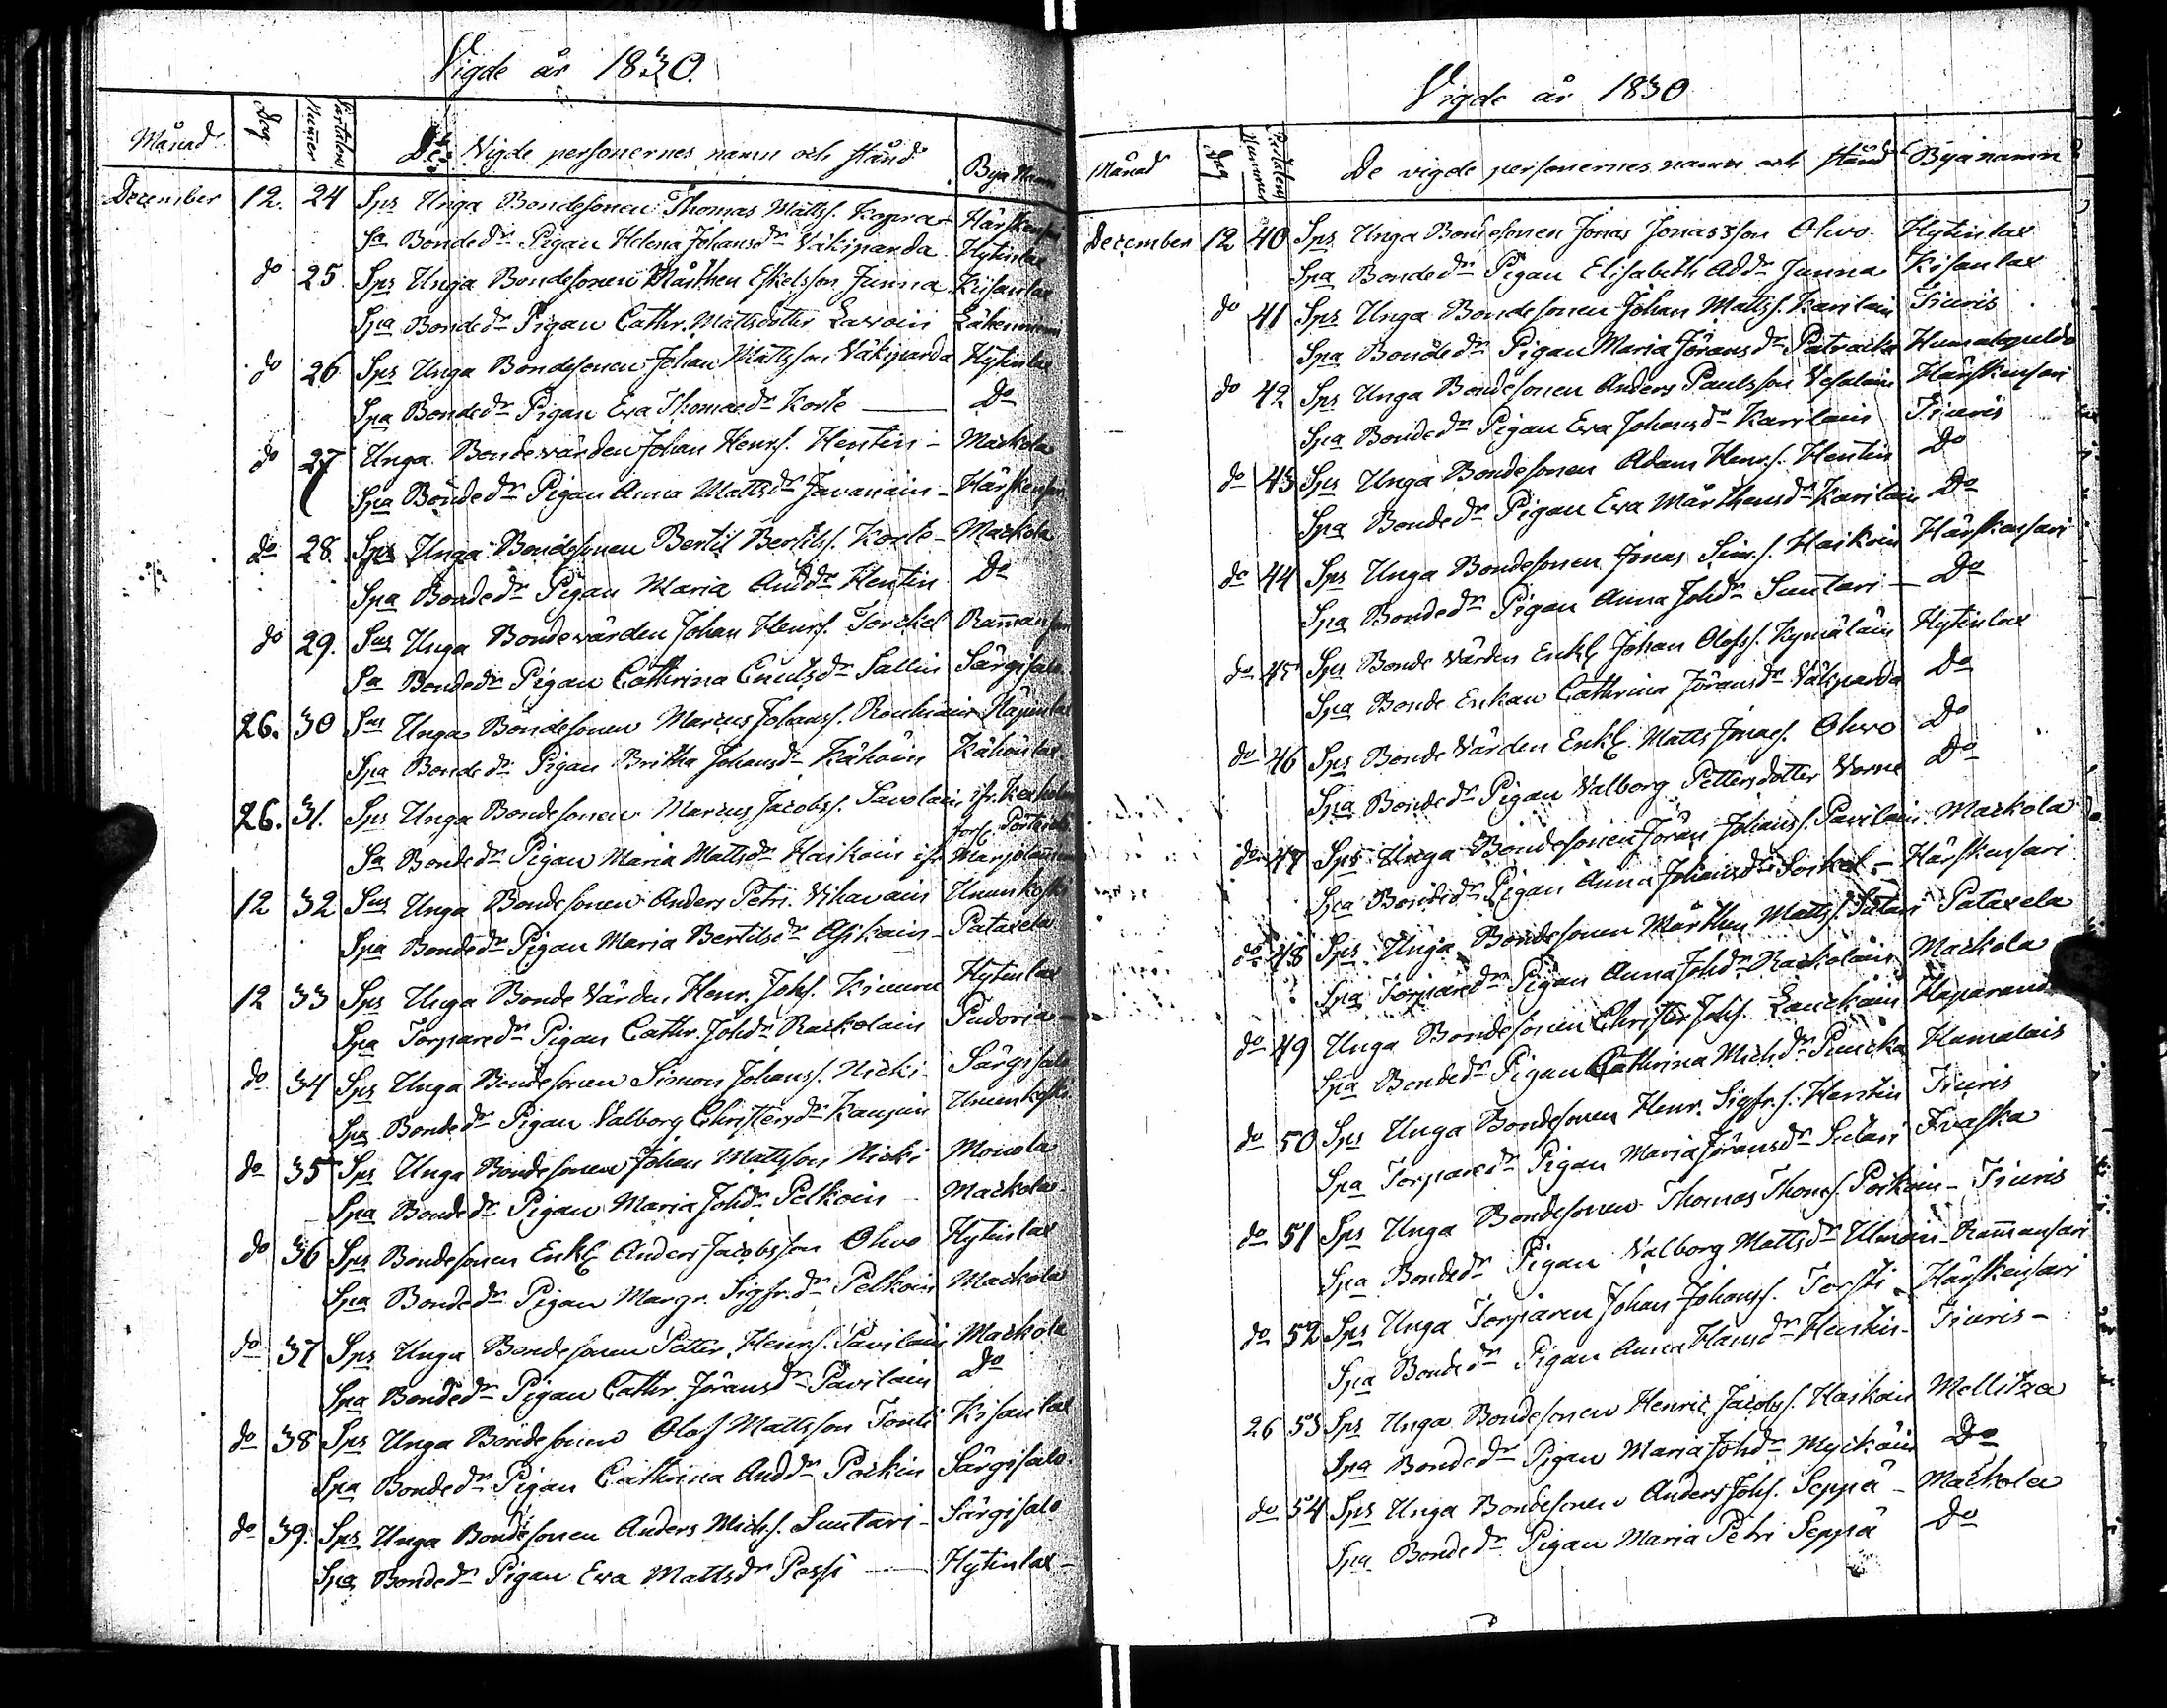 Vigde år 1830.
Månad Dag Partalens Numer De Vigde personernes namn och stånd Bya Namn
December 12. 24 Sps Unga Bondesonen Thomas Mattss. Kapra- Härskensari
Sa Bondedr Pigan Helena Johansdr Väkiparda Hytinlax
do 25. Sps Unga Bondesonen Mårthen Eskelsson Junna Kisanlax
Spa Bondedr Pigan Cathr. Mattsdotter Lavoin
do 26 Sps Unga Bondesonen Johan Mattsson Väkiparda Hytinlax
Spa Bondedr Pigan Eva Thomaedr Korte — Do
do 27 Unga Bondevärden Johan Henrs. Hentin - Mackola
Spa Bondedr Pigan Anna Mattsdr Javanain - Härskensari
do 28. Sps Unga Bondesonen Bertil Bertilss. Korte - Mackola
Spa Bondedr Pigan Maria Anddr Hentin Do
do 29. Sps Unga Bondevärden Johan Henrs. Torckel Ramansari
Sa Bondedr Pigan Cathrina Enulsdr Sallin Särgisalo
26. 30 Sps Unga Bondesonen Marcus Johanss. Rouhiain Käpinlax
Spa Bondedr Pigan Britha Johansdr Kähöin Kähönlax
26. 31. Sps Unga Bondesonen Marcus Jacobss. Savolain ifr. Kexholm
förs. Pörtkoski
Sa Bondedr Pigan Maria Mattsdr Haikoin ifr
12 32 Sps Unga Bondesonen Anders Petri. Vihavain Ununkoski
Spa Bondedr Pigan Maria Bertilsdr Asikain - Pataxela
12 33 Sps Unga Bonde Värden Henr. Johs. Kiuuru Hytinlax
Spa Torparedr Pigan Cathr. Johdr Rackolain Pudoria -
do 34 Sps Unga Bondesonen Simon Johanss. Nicki - Särgisalo
Spa Bondedr Pigan Valborg Christersdr Kaupin Ununkoski
do 35 Sps Unga Bondesonen Johan Mattsson Nicki Monola
Spa Bondedr Pigan Maria Johdr Pelkoin - Mackola
do 36 Sps Bondesonen Enkl Anders Jacobsson Ohvo Hytinlax
Spa Bondedr Pigan Margr. Sigfr.dr Pelkoin Mackola
do 37 Sps Unga Bondesonen Petter Henrs. Pavilain Mackola
Spa Bondedr Pigan Cathr. Jöransdr Pavilain Do
do 38 Sps Unga Bondesonen Olof Mattsson Tonti Kisanlax
Spa Bondedr Pigan Cathrina Anddr Pockin Särgisalo
do 39. Sps Unga Bondesonen Anders Michs. Suutari - Särgisalo
Spa Bondedr Pigan Eva Mattsdr Possi — Hytinlax -
Vigde år 1830
Månad Dag Partalens Nummer De vigde personernes namn och stånd Byanamn
December 12 40 Sps Unga Bondesonen Jonas Jonasson Ohvo Hytinlax
Spa Bondedr Pigan Elisabeth Addr Junna Kisanlax
do 41 Sps Unga Bondesonen Johan Mattss. Karilain Tiuris
Spa Bondedr Pigan Maria Jöransdr Patracka Humalapuldo
do 42 Sps Unga Bondesonen Anders Paulsson Vesalain Härskensari
Spa Bondedr Pigan Eva Johansdr Karilain Tiuris
do 43 Sps Unga Bondesonen Adam Henrs. Hentin Do
Spa Bondedr Pigan Eva Mårthensdr Karilain Do
do 44 Sps Unga Bondesonen Jonas Sim.s. Haikoin Härskensari
Spa Bondedr Pigan Anna Johdr Suutari — Do
do 45 Sps Bonde Värden Enkl Johan Olofss. Kymäläin Hytinlax
Spa Bonde Enkan Cathrina Jöransdr Väkiparda Do
do 46 Sps Bonde Värden Enkl. Matts Jonaes. Ohvo Do
Spa Bondedr Pigan Valborg Pettersdotter Vorne Do
do 47 Sps Unga Bondesonen Jöran Johanss. Pavilain Mackola
Spa Bondedr Pigan Anna Johansdr Torkel - Härskensari
do 48 Sps Unga Bondesonen Mårthen Mattss. Sutari Pataxela
Spa Torparedr Pigan Anna Johdr Rackolain Mackola
do 49 Unga Bondesonen Christer Johs. Lauckain Haparanda
Spa Bondedr Pigan Cathrina Michdr Puucka Humalais
do 50 Sps Unga Bondesonen Henr. Sigfr.s. Hentin Tiuris
Spa Torparedr Pigan Maria Jöransdr Sutari Kvaska
do 51 Sps Unga Bondesonen Thomas Thoms. Poikoin - Tiuris
Spa Bondedr Pigan Valborg Mattsdr Ulmain - Ramansari
do 52 Sps Unga Torparen Johan Johanss. Torsti - Härskensari
Spa Bondedr Pigan Anna Hansdr Hentin - Tiuris -
26 53 Sps Unga Bondesonen Henric Jacobss. Haikoin Mellitza
Spa Bondedr Pigan Maria Johdr Myckäin Do
do 54 Sps Unga Bondesonen Anders Johs. Seppä - Mackola
Spa Bondedr Pigan Maria Petri Seppä Do